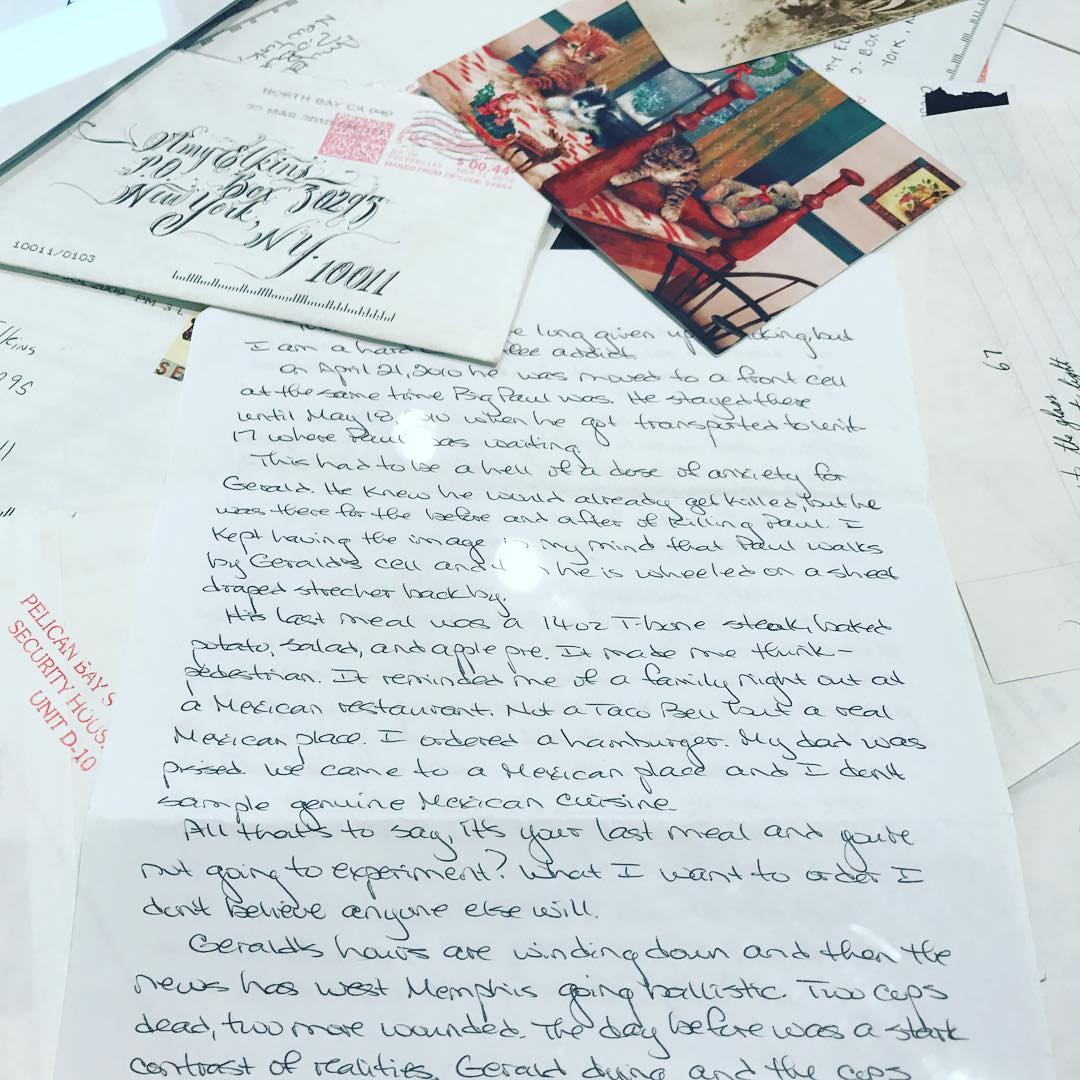 NORTH BAY CA 949
$ 00.44
MAILED FROM ZIP CODE
Amy Elkins
P.O. Box 30295
New York, NY.
10011
10011/0103
PM 3 L
SE
95
MY EL
BOX
YORK,
67
to the glass
light
PELICAN BAY S
SECURITY HOUS
UNIT D-10
long given up but
I am a hard addict.
On April 21, 2010 he was moved to a front cell
at the same time Big Paul was. He stayed there
until May 18 10 when he got transported to unit
17 where Paul was waiting.
This had to be a hell of a dose of anxiety for
Gerald. He knew he would already get killed, but he
was there for the before and after of killing Paul. I
kept having the image in my mind that Paul walks
by Gerald's cell and he is wheeled on a sheet
draped strecher back by.
His last meal was a 14oz T-bone steak, baked
potato, salad, and apple pie. It made me think-
pedestrian. It reminded me of a family night out at
a Mexican restaurant. Not a Taco Bell but a real
Mexican place. I ordered a hamburger. My dad was
pissed we came to a Mexican place and I don't
sample genuine Mexican cuisine.
All that's to say, it's your last meal and you're
not going to experiment? What I want to order I
don't believe anyone else will.
Gerald's hours are winding down and then the
news has West Memphis going ballistic. Two cops
dead, two more wounded. The day before was a stark
contrast of realities. Gerald dying and the cops